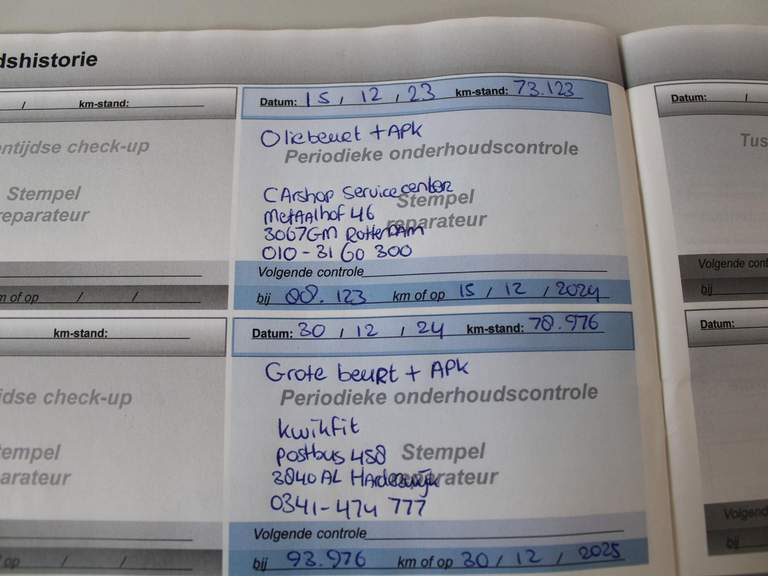 dshistorie
/ km-stand:
entijdse check-up
Stempel
reparateur
m of op / /
km-stand:
idse check-up
tempel
arateur
op / /
Datum: 15 / 12 / 23 km-stand: 73.123
Oliebeurt + APK
Periodieke onderhoudscontrole
CArshop Servicecenter
Stempel
Metaalhof 46
reparateur
3067GM Rotterdam
010 - 31 60 300
Volgende controle
bij 88.123 km of op 15 / 12 / 2024
Datum: 30 / 12 / 24 km-stand: 78.976
Grote beurt + APK
Periodieke onderhoudscontrole
kwikfit
Postbus 458 Stempel
3840 AL Harderwijk
arateur
0341-474 777
Volgende controle
bij 93.976 km of op 30 / 12 / 2025
Datum: /
Tus
Volgende cont
bij
Datum:
Volgend
bij